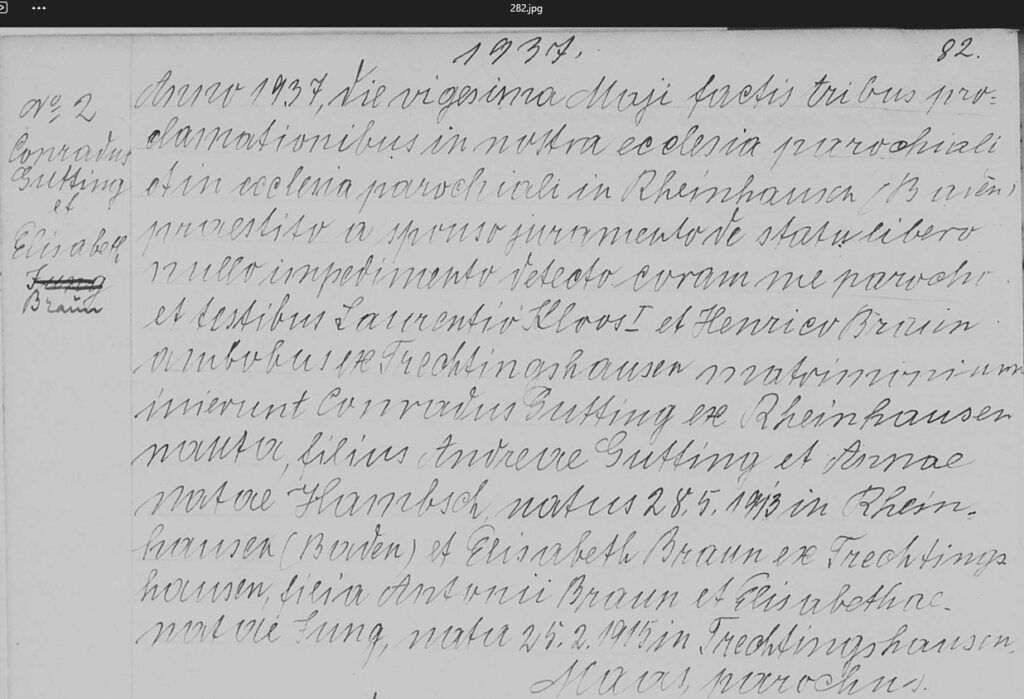 282.jpg
1937.
82.
No. 2
Conradus
Gutting
et
Elisabeth
Jung
Braun
Anno 1937, die vigesima Maji factis tribus pro=
clamationibus in nostra ecclesia parochiali
et in ecclesia parochiali in Rheinhausen (Baden)
praestito a sponso juramento de statu libero
nullo impedimento detecto coram me parocho
et testibus Laurentio Kloos I et Henrico Braun
ambobus ex Trechtingshausen matrimonium
inierunt Conradus Gutting ex Rheinhausen
nauta, filius Andreae Gutting et Annae
natae Hambsch, natus 28.5.1913 in Rhein-
hausen (Baden) et Elisabeth Braun ex Trechtings
hausen, filia Antonii Braun et Elisabethae
natae Jung, nata 25.2.1915 in Trechtingshausen.
Maas, parochus.